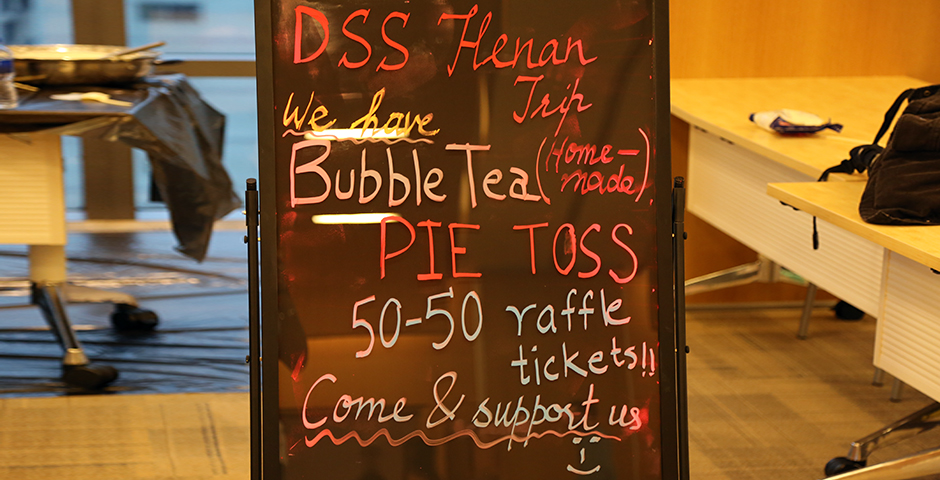 DSS Henan
Trip
We have
Bubble Tea (Home-
made)
PIE TOSS
50-50 raffle
tickets!!
Come & support us